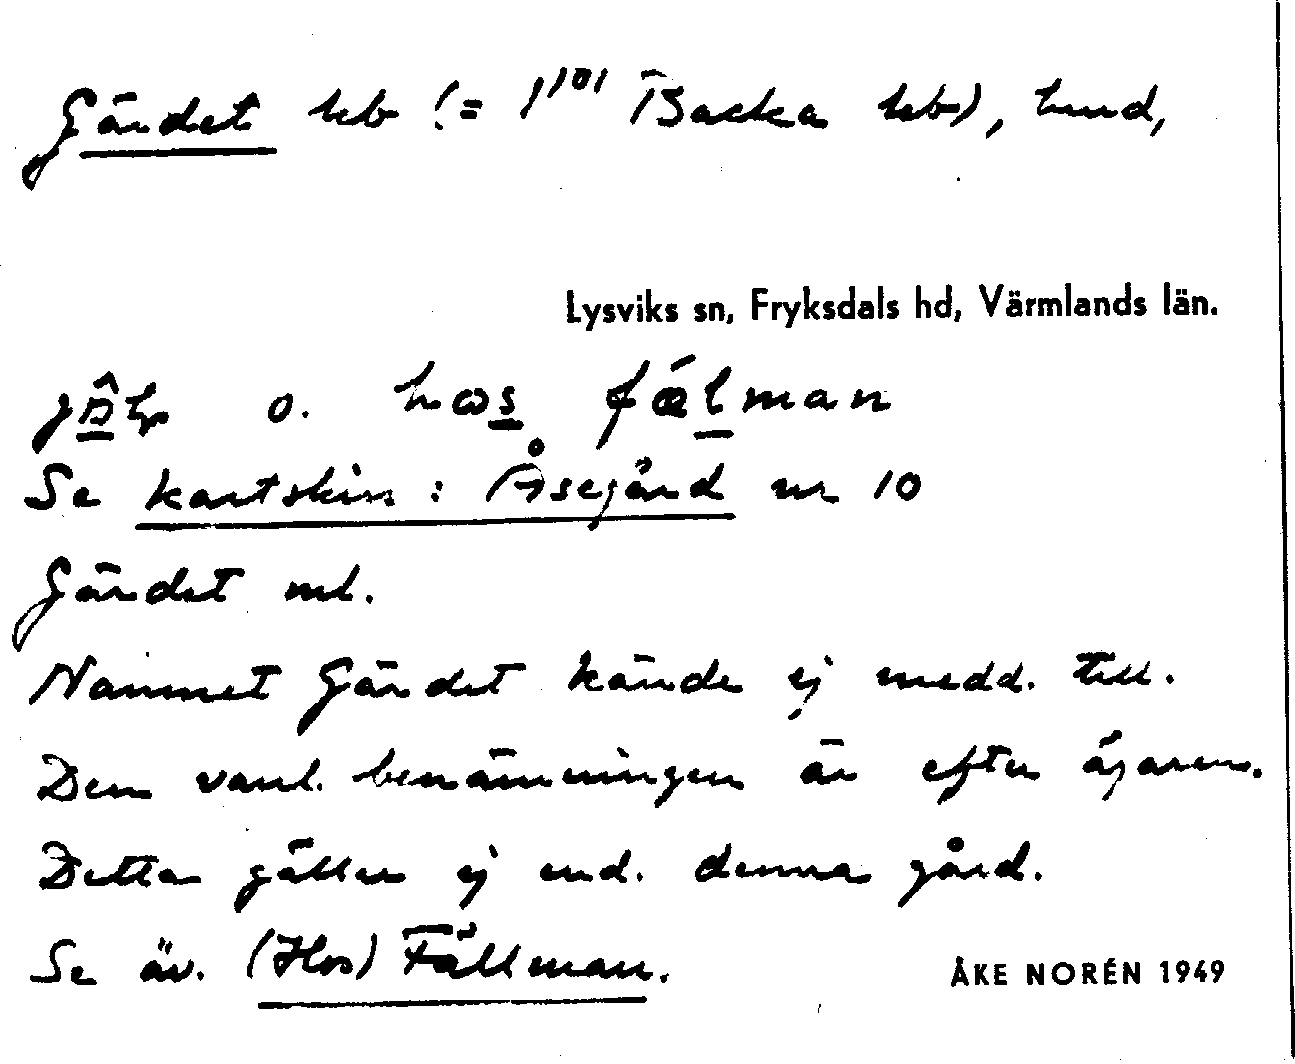 Gärdet lth (= 1¹⁰¹ Backa lth), hmd,
Lysviks sn, Fryksdals hd, Värmlands län.
o. hos fælman
Se kartskiss: Åsegård nr 10
Gärdet ml.
Namnet Gärdet kände ej medd. till.
Den vanl. benämningen är efter ägaren.
Detta gäller ej end. denna gård.
Se äv. (Hos) Fällman.
ÅKE NORÉN 1949